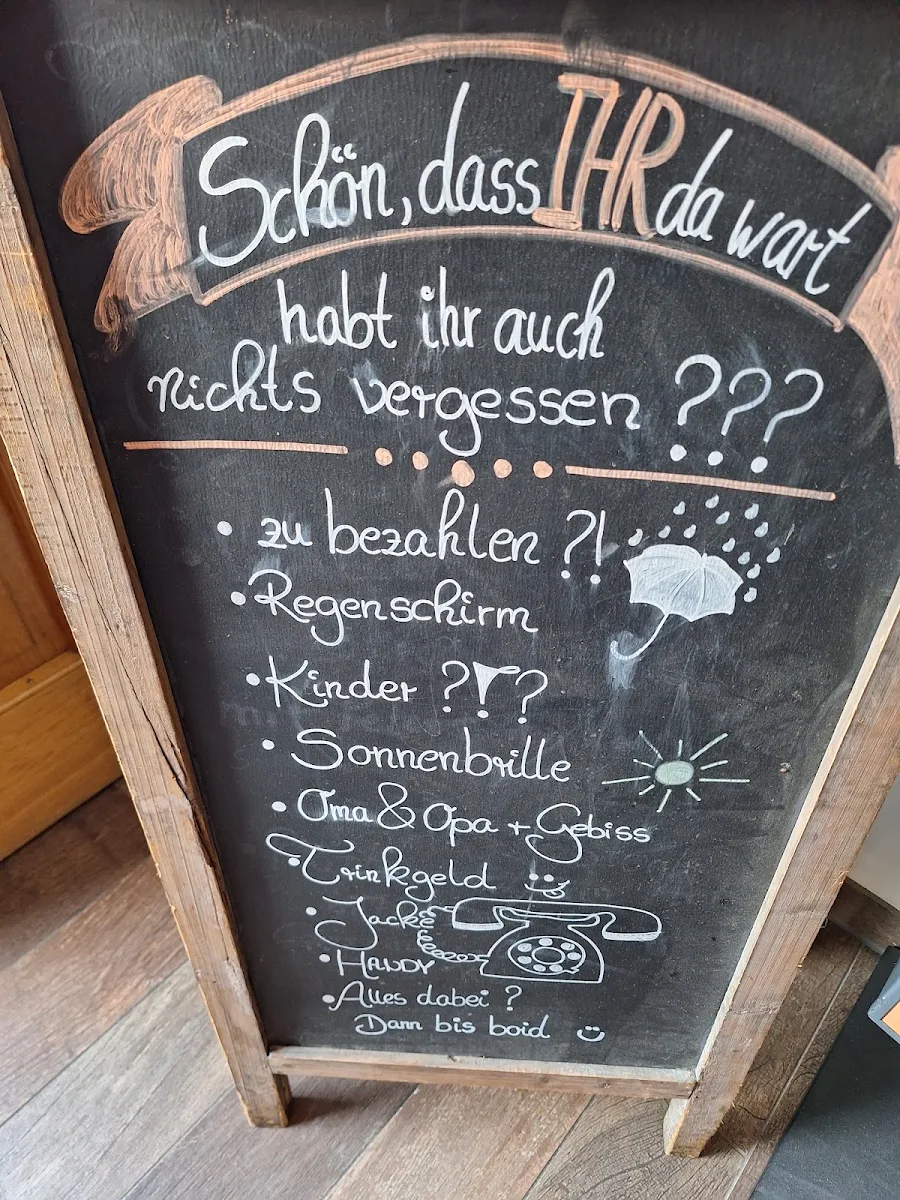 Schön, dass IHR da wart
habt ihr auch
nichts vergessen ???
• zu bezahlen ?!
• Regenschirm
• Kinder ?!?
• Sonnenbrille
• Oma & Opa + Gebiss
• Trinkgeld
• Jacke
• HANDY
• Alles dabei ?
Dann bis boid